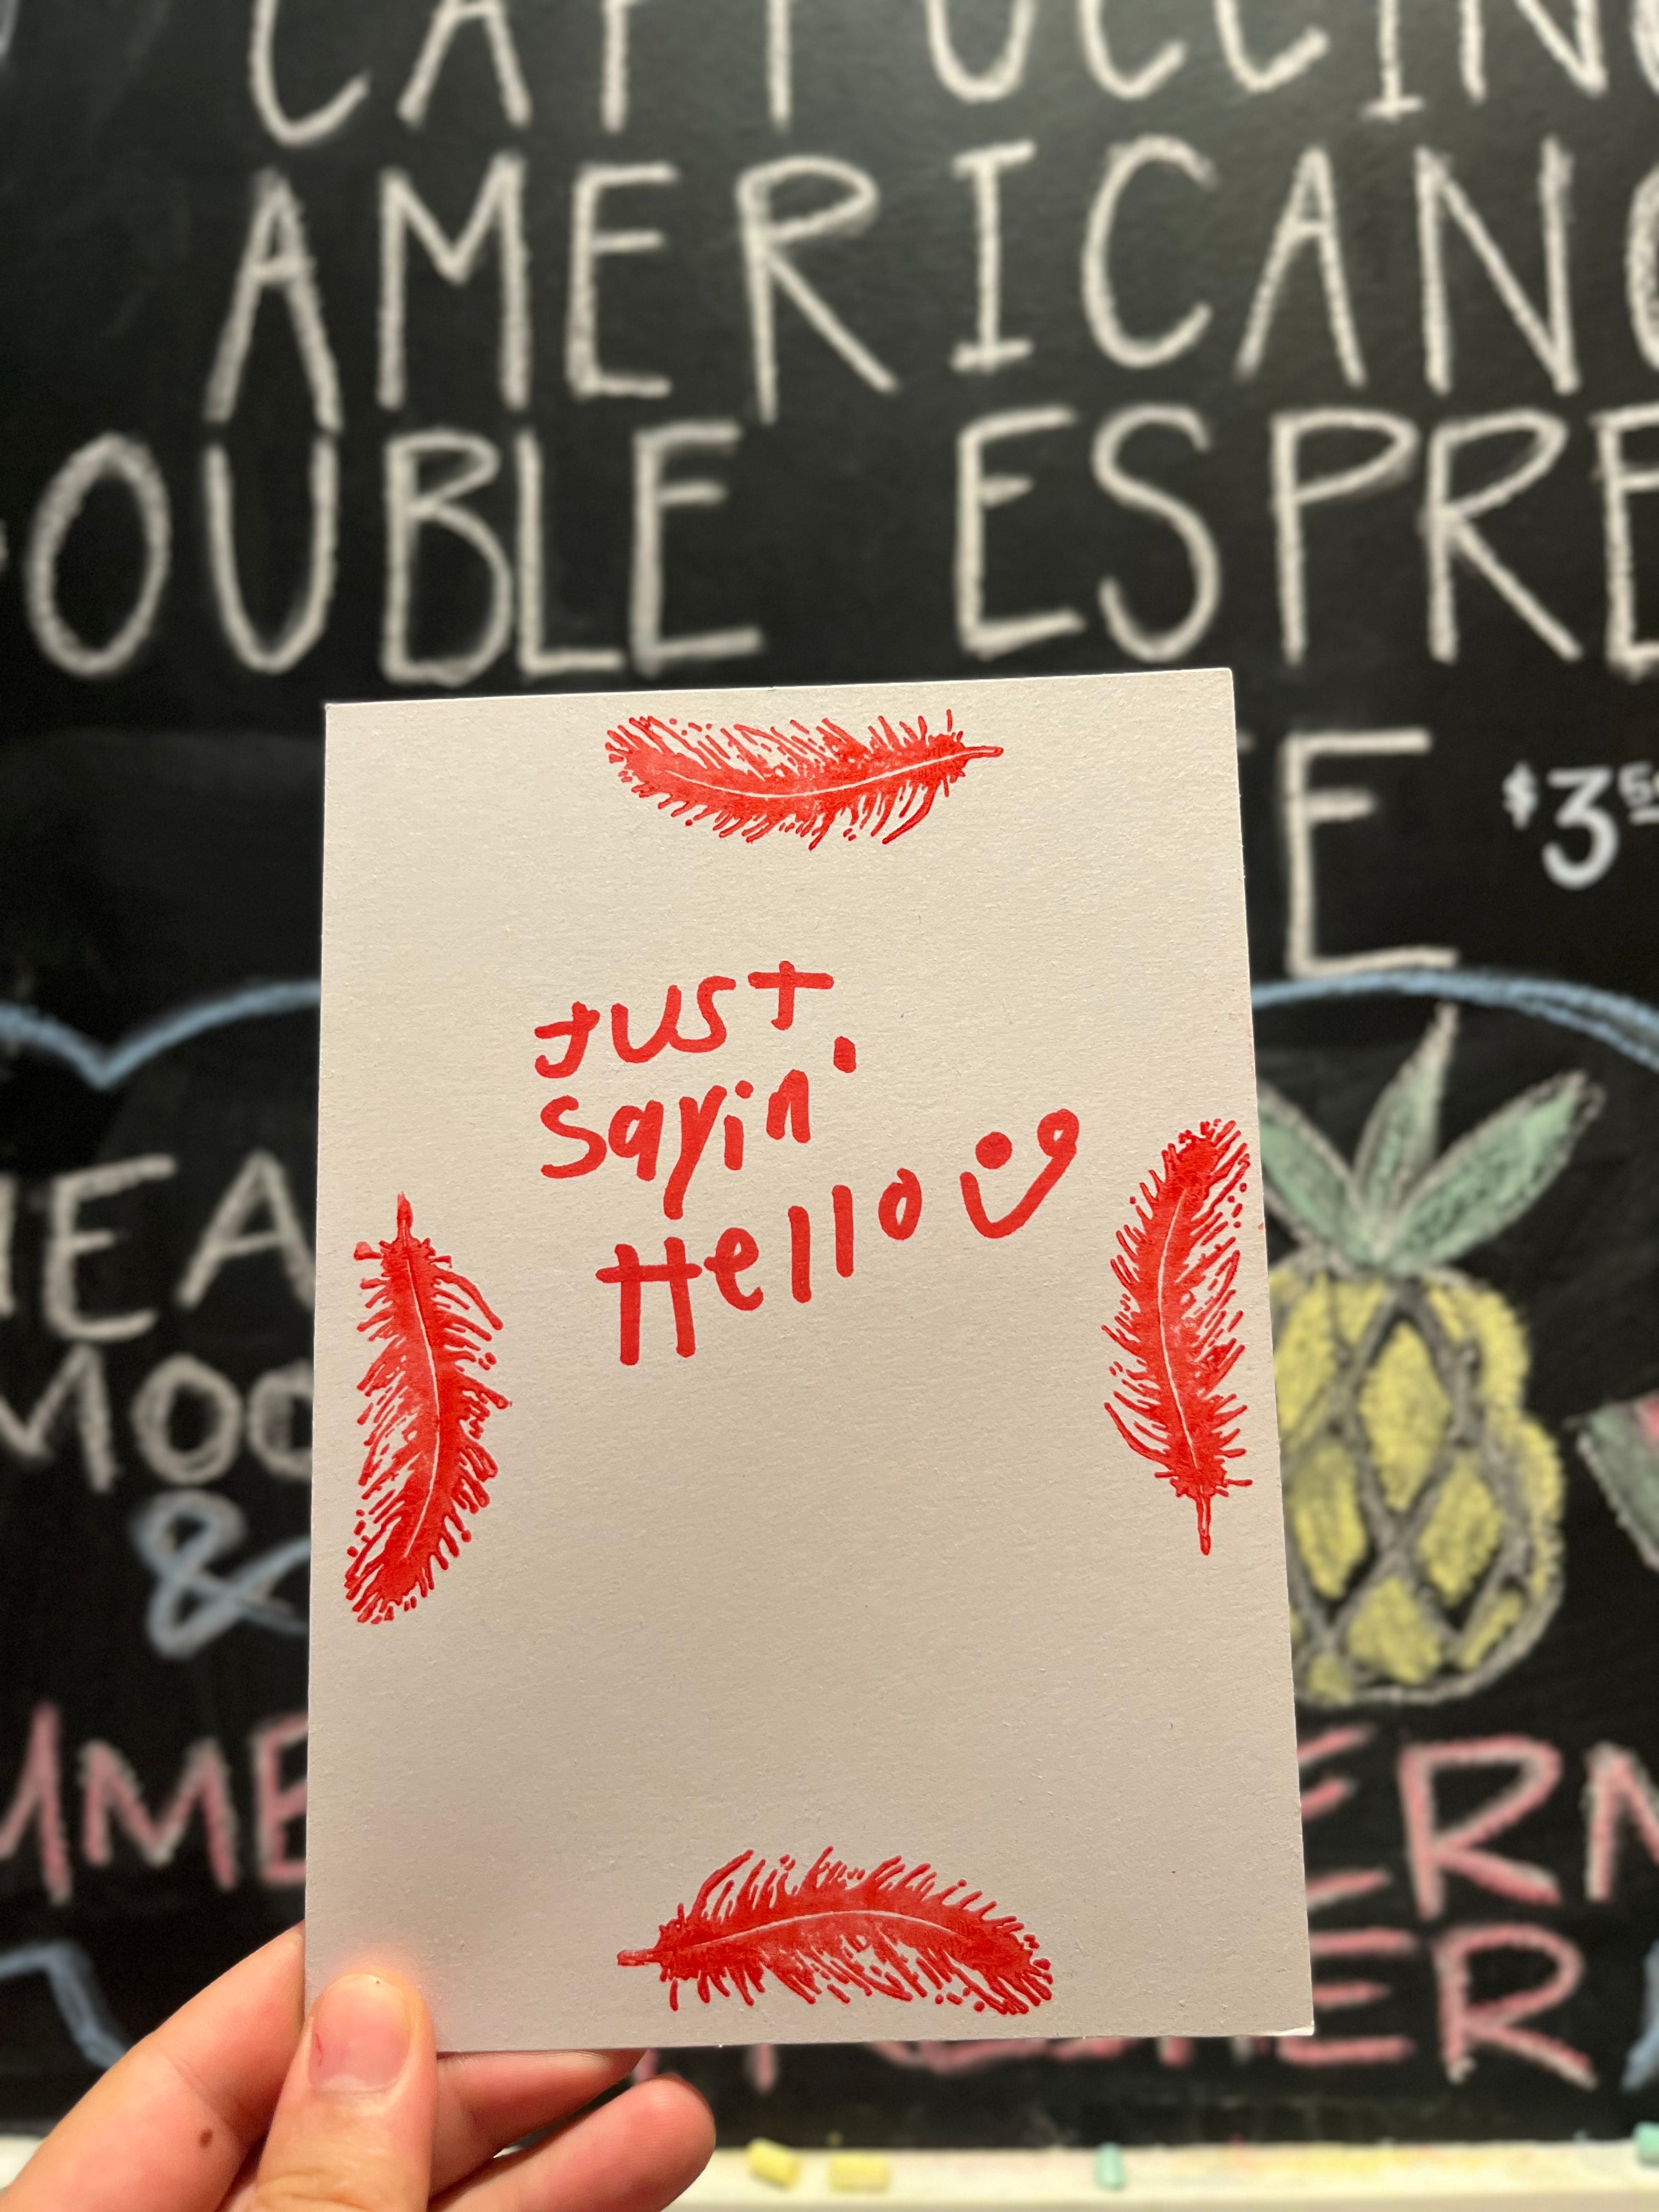 CAPPUCCINO
AMERICANO
OUBLE ESPRE
E $3.50
Just
Sayin'
Hello
EA
MOO
&
MME ERM
ER